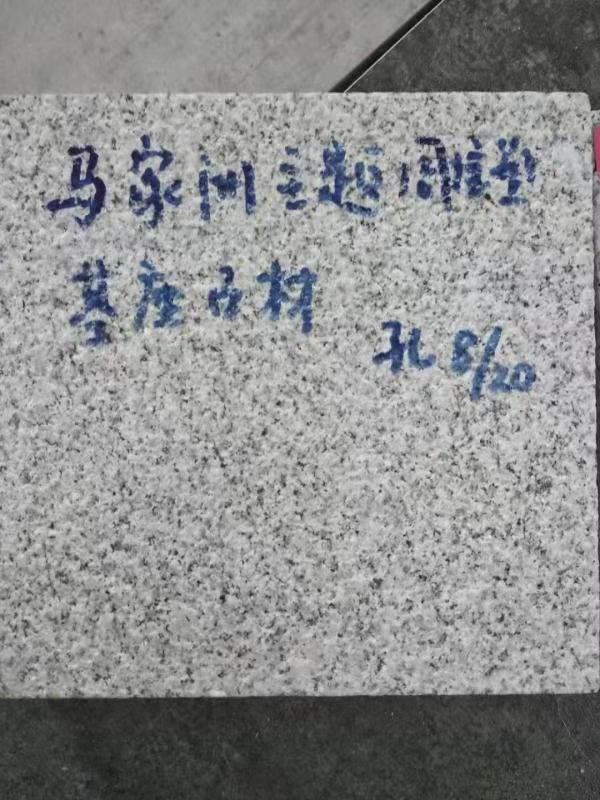 马家洲主题雕塑
基座石材
孔 8/20